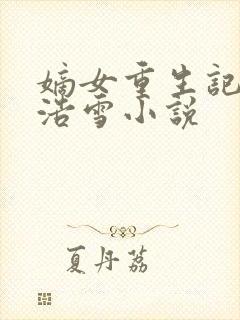 嫡女重生記
浩雪小説
夏丹荔